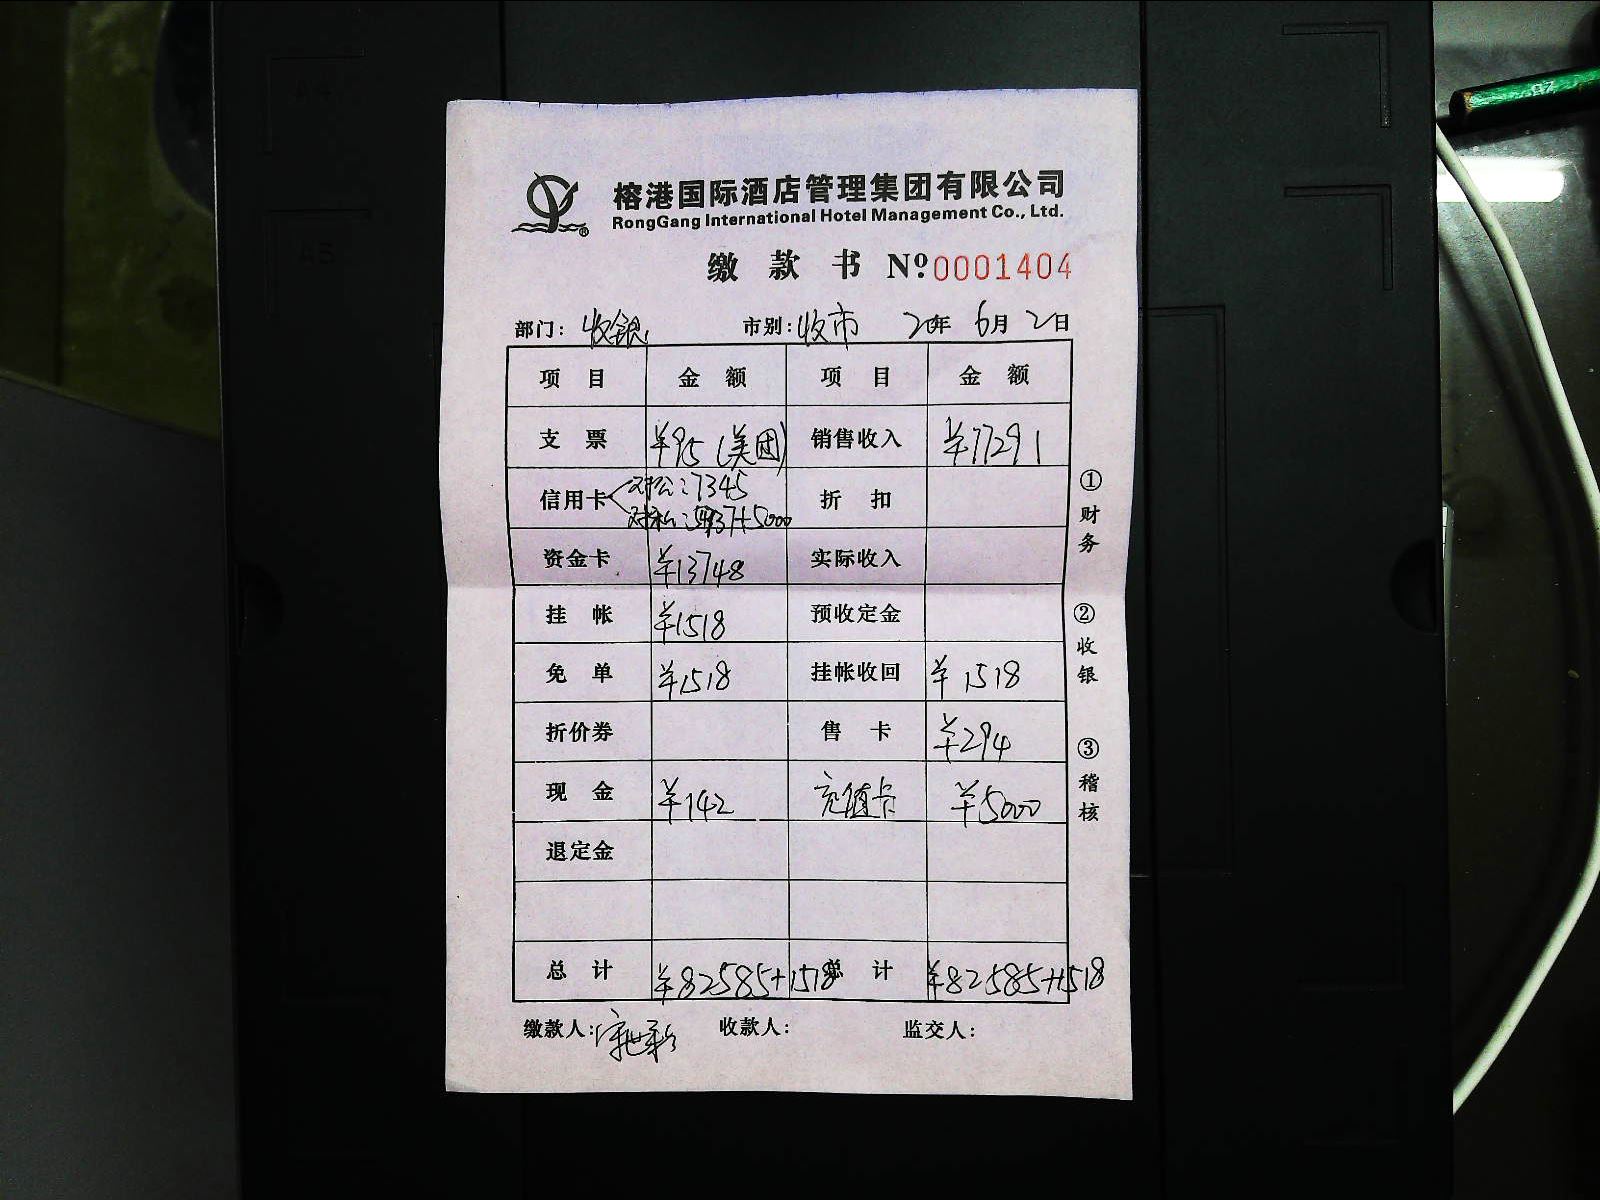 榕港国际酒店管理集团有限公司
RongGang International Hotel Management Co., Ltd.
缴款书 Nº 0001404
部门：收银 市别：收市 20年 6月 2日
项目 金额 项目 金额
支票 ¥95（美团） 销售收入 ¥77291
信用卡 对公：7345 折扣
对私：5937+5000
资金卡 ¥13748 实际收入
挂帐 ¥1518 预收定金
免单 ¥1518 挂帐收回 ¥1518
折价券 售卡 ¥294
现金 ¥142 充值卡 ¥5000
退定金
总计 ¥82585+1518 总计 ¥82585+1518
缴款人： 收款人： 监交人：
①财务
②收银
③稽核
A4
A5